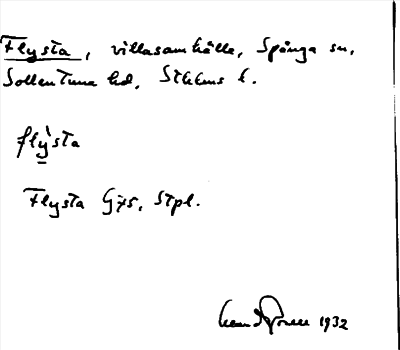 Flysta, villasamhälle, Spånga sn,
Sollentuna hd, Sthlms l.
flỳsta
Flysta Gjs, Stpl.
1932